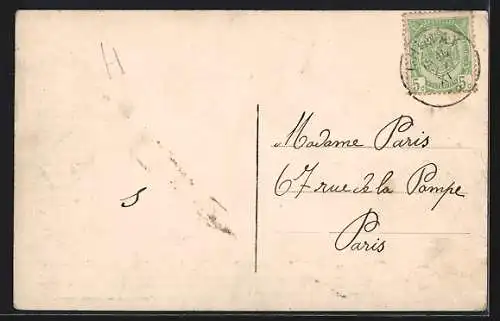 H
Madame Paris
67 rue de la Pompe
Paris
S
5c 5c